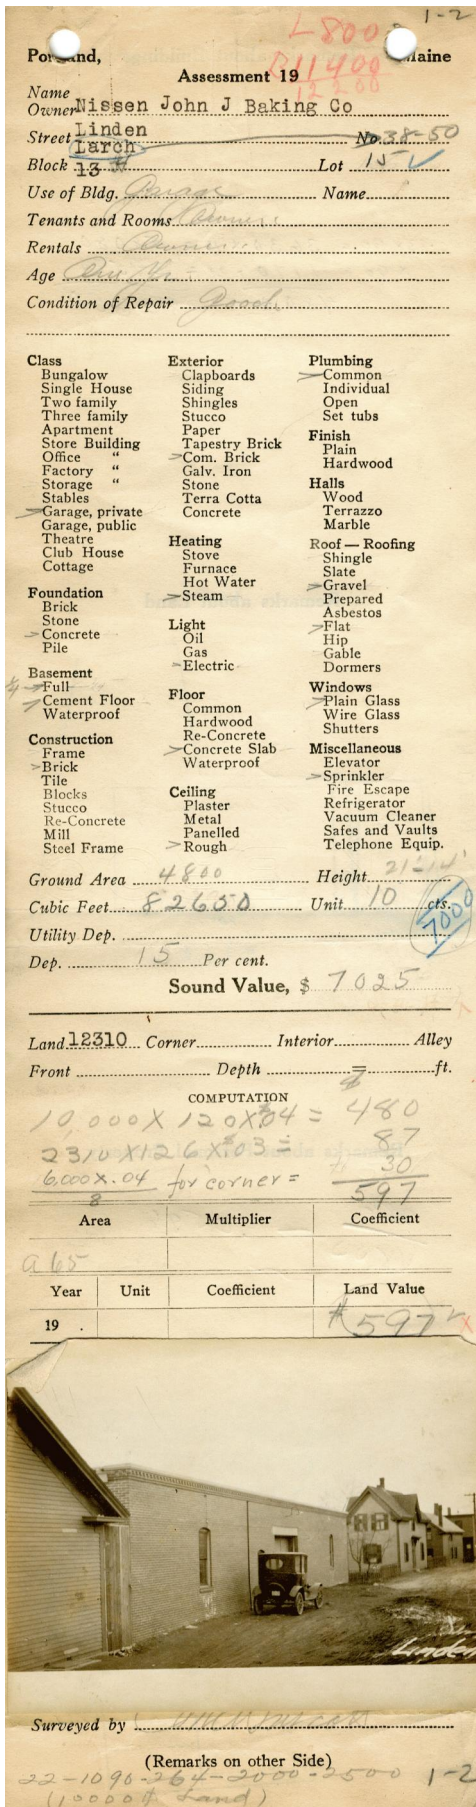 1-2
L 800
B 11400
12200
Portland, Maine
Assessment 19
Name
Owner Nissen John J Baking Co
Linden
Street Larch No. 38-50
Block 13 H Lot 15 ✓
Use of Bldg. Garage Name
Tenants and Rooms Owner
Rentals Owner
Age One Yr.
Condition of Repair Good
Class
Bungalow
Single House
Two family
Three family
Apartment
Store Building
Office "
Factory "
Storage "
Stables
Garage, private
Garage, public
Theatre
Club House
Cottage
Foundation
Brick
Stone
Concrete
Pile
Basement
Full
Cement Floor
Waterproof
Construction
Frame
Brick
Tile
Blocks
Stucco
Re-Concrete
Mill
Steel Frame
Exterior
Clapboards
Siding
Shingles
Stucco
Paper
Tapestry Brick
Com. Brick
Galv. Iron
Stone
Terra Cotta
Concrete
Heating
Stove
Furnace
Hot Water
Steam
Light
Oil
Gas
Electric
Floor
Common
Hardwood
Re-Concrete
Concrete Slab
Waterproof
Ceiling
Plaster
Metal
Panelled
Rough
Plumbing
Common
Individual
Open
Set tubs
Finish
Plain
Hardwood
Halls
Wood
Terrazzo
Marble
Roof — Roofing
Shingle
Slate
Gravel
Prepared
Asbestos
Flat
Hip
Gable
Dormers
Windows
Plain Glass
Wire Glass
Shutters
Miscellaneous
Elevator
Sprinkler
Fire Escape
Refrigerator
Vacuum Cleaner
Safes and Vaults
Telephone Equip.
Ground Area 4800 Height 21'-14'
Cubic Feet 82650 Unit 10 cts.
7000
Utility Dep.
Dep. 15 Per cent.
Sound Value, $ 7025
Land 12310 Corner Interior Alley
Front Depth ft.
COMPUTATION
10,000 X 120 X .04 = 480
2310 X 126 X .03 = 87
6,000 X .04 for corner = 30
8 597
Area Multiplier Coefficient
a 65
Year Unit Coefficient Land Value
19 . $597 ✓ X
Linden
Surveyed by
(Remarks on other Side)
22-1090-264-2000-2500 1-2
(10000 # Land)